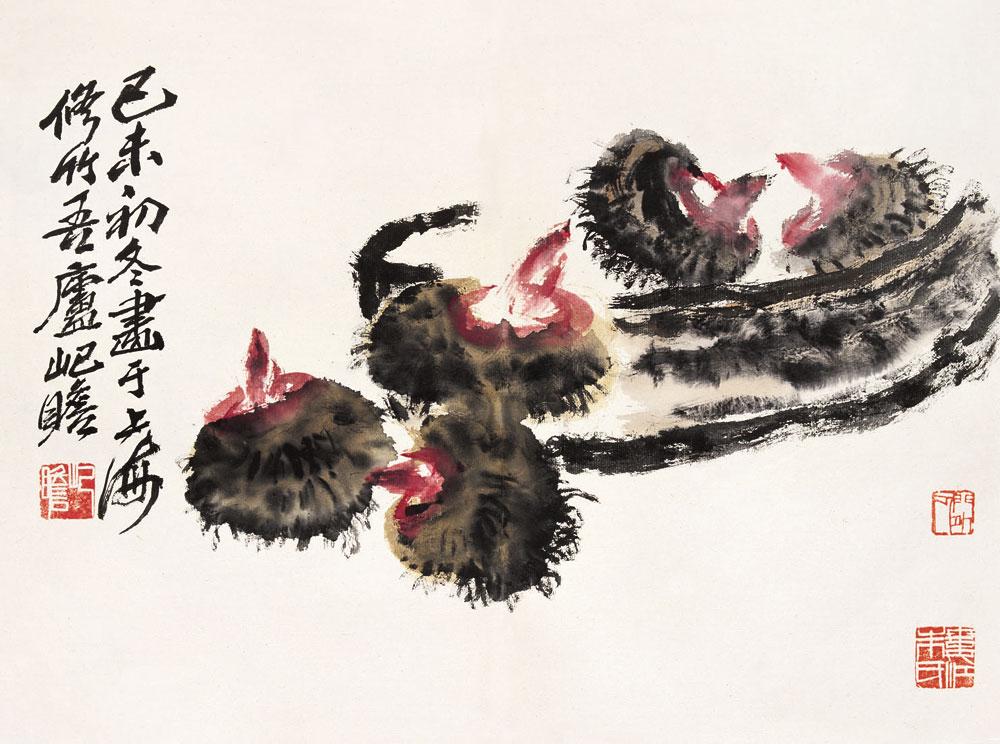 己未初冬畫于上海
修竹吾廬屺瞻
屺瞻